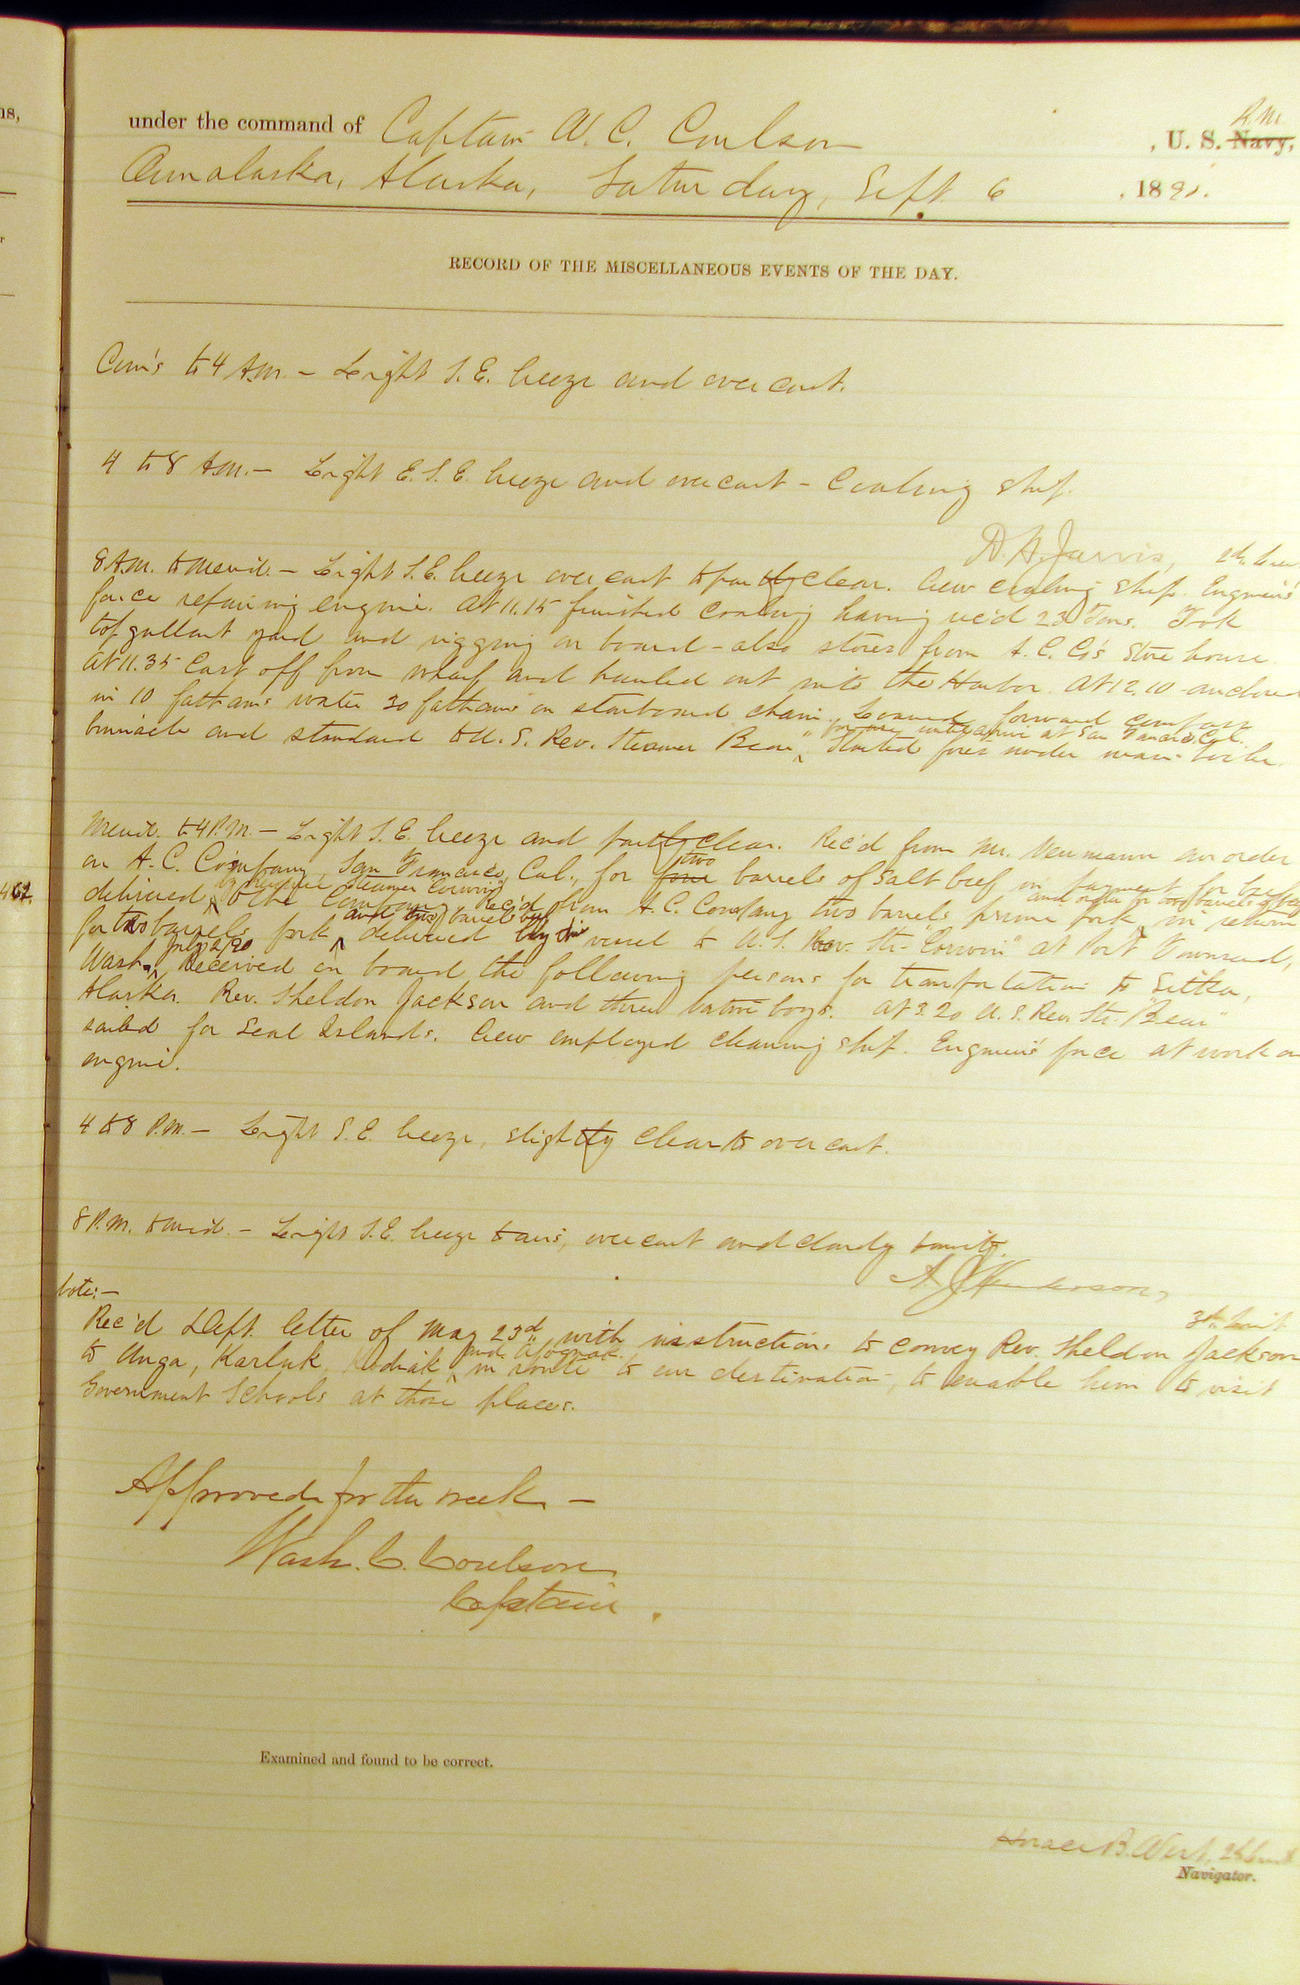 ns,
under the command of Captain W. C. Coulson, U. S. Navy, R. M.
Ounalaska, Alaska, Saturday, Sept. 6, 1890.
RECORD OF THE MISCELLANEOUS EVENTS OF THE DAY.
Com's to 4 A.M. – Light S. E. breeze and overcast.
4 to 8 A.M. – Light E. S. E. breeze and overcast – Coaling ship.
D. H. Jarvis, 2d. Lieut
8 A.M. to Merid. – Light S. E. breeze overcast to partly clear. Crew coaling ship. Engineer's
force repairing engine. At 11.15 finished coaling having rec'd 23 Tons. Took
top gallant yard and rigging on board – also stores from A. C. Co's Store house.
At 11.35 Cast off from wharf and hauled out into the Harbor. At 12.10 anchored
in 10 fathoms water 30 fathoms on starboard chain. Loaned forward compass
for use until arrive at San Francisco, Cal.
binnacle and standard to U. S. Rev. Steamer "Bear" Started fires under main boiler.
Merid. to 4 P.M. – Light S. E. breeze and partly clear. Rec'd from Mr. Neumann an order
two
on A. C. Company, San Francisco, Cal., for four barrels of Salt beef in payment for beef
by Revenue Steamer Corwin and order for two barrels of beef
delivered to the Company. Rec'd from A. C. Company two barrels prime pork in return
and two barrels beef
for two barrels pork delivered by this vessel to U. S. Rev. Str. "Corwin" at Port Townsend,
July 2/90
Wash. Received on board the following persons for transportation to Sitka,
Alaska. Rev. Sheldon Jackson and three native boys. At 3.20 U. S. Rev. Str. "Bear"
sailed for Seal Islands. Crew employed cleaning ship. Engineer's force at work on
engine.
4 to 8 P.M. – Light S. E. breeze, slightly clear to overcast.
8 P.M. to Mid. – Light S. E. breeze to airs, overcast and cloudy
A. J. Henderson,
3d. Lieut
Note: –
Rec'd Dept. letter of May 23d with instructions to convey Rev. Sheldon Jackson
and Afognak
to Unga, Karluk, Kodiak in route to our destination, to enable him to visit
Government Schools at those places.
Approved for the week –
Wash. C. Coulson
Captain.
Examined and found to be correct.
Horace B. West, 2d Lieut
Navigator.